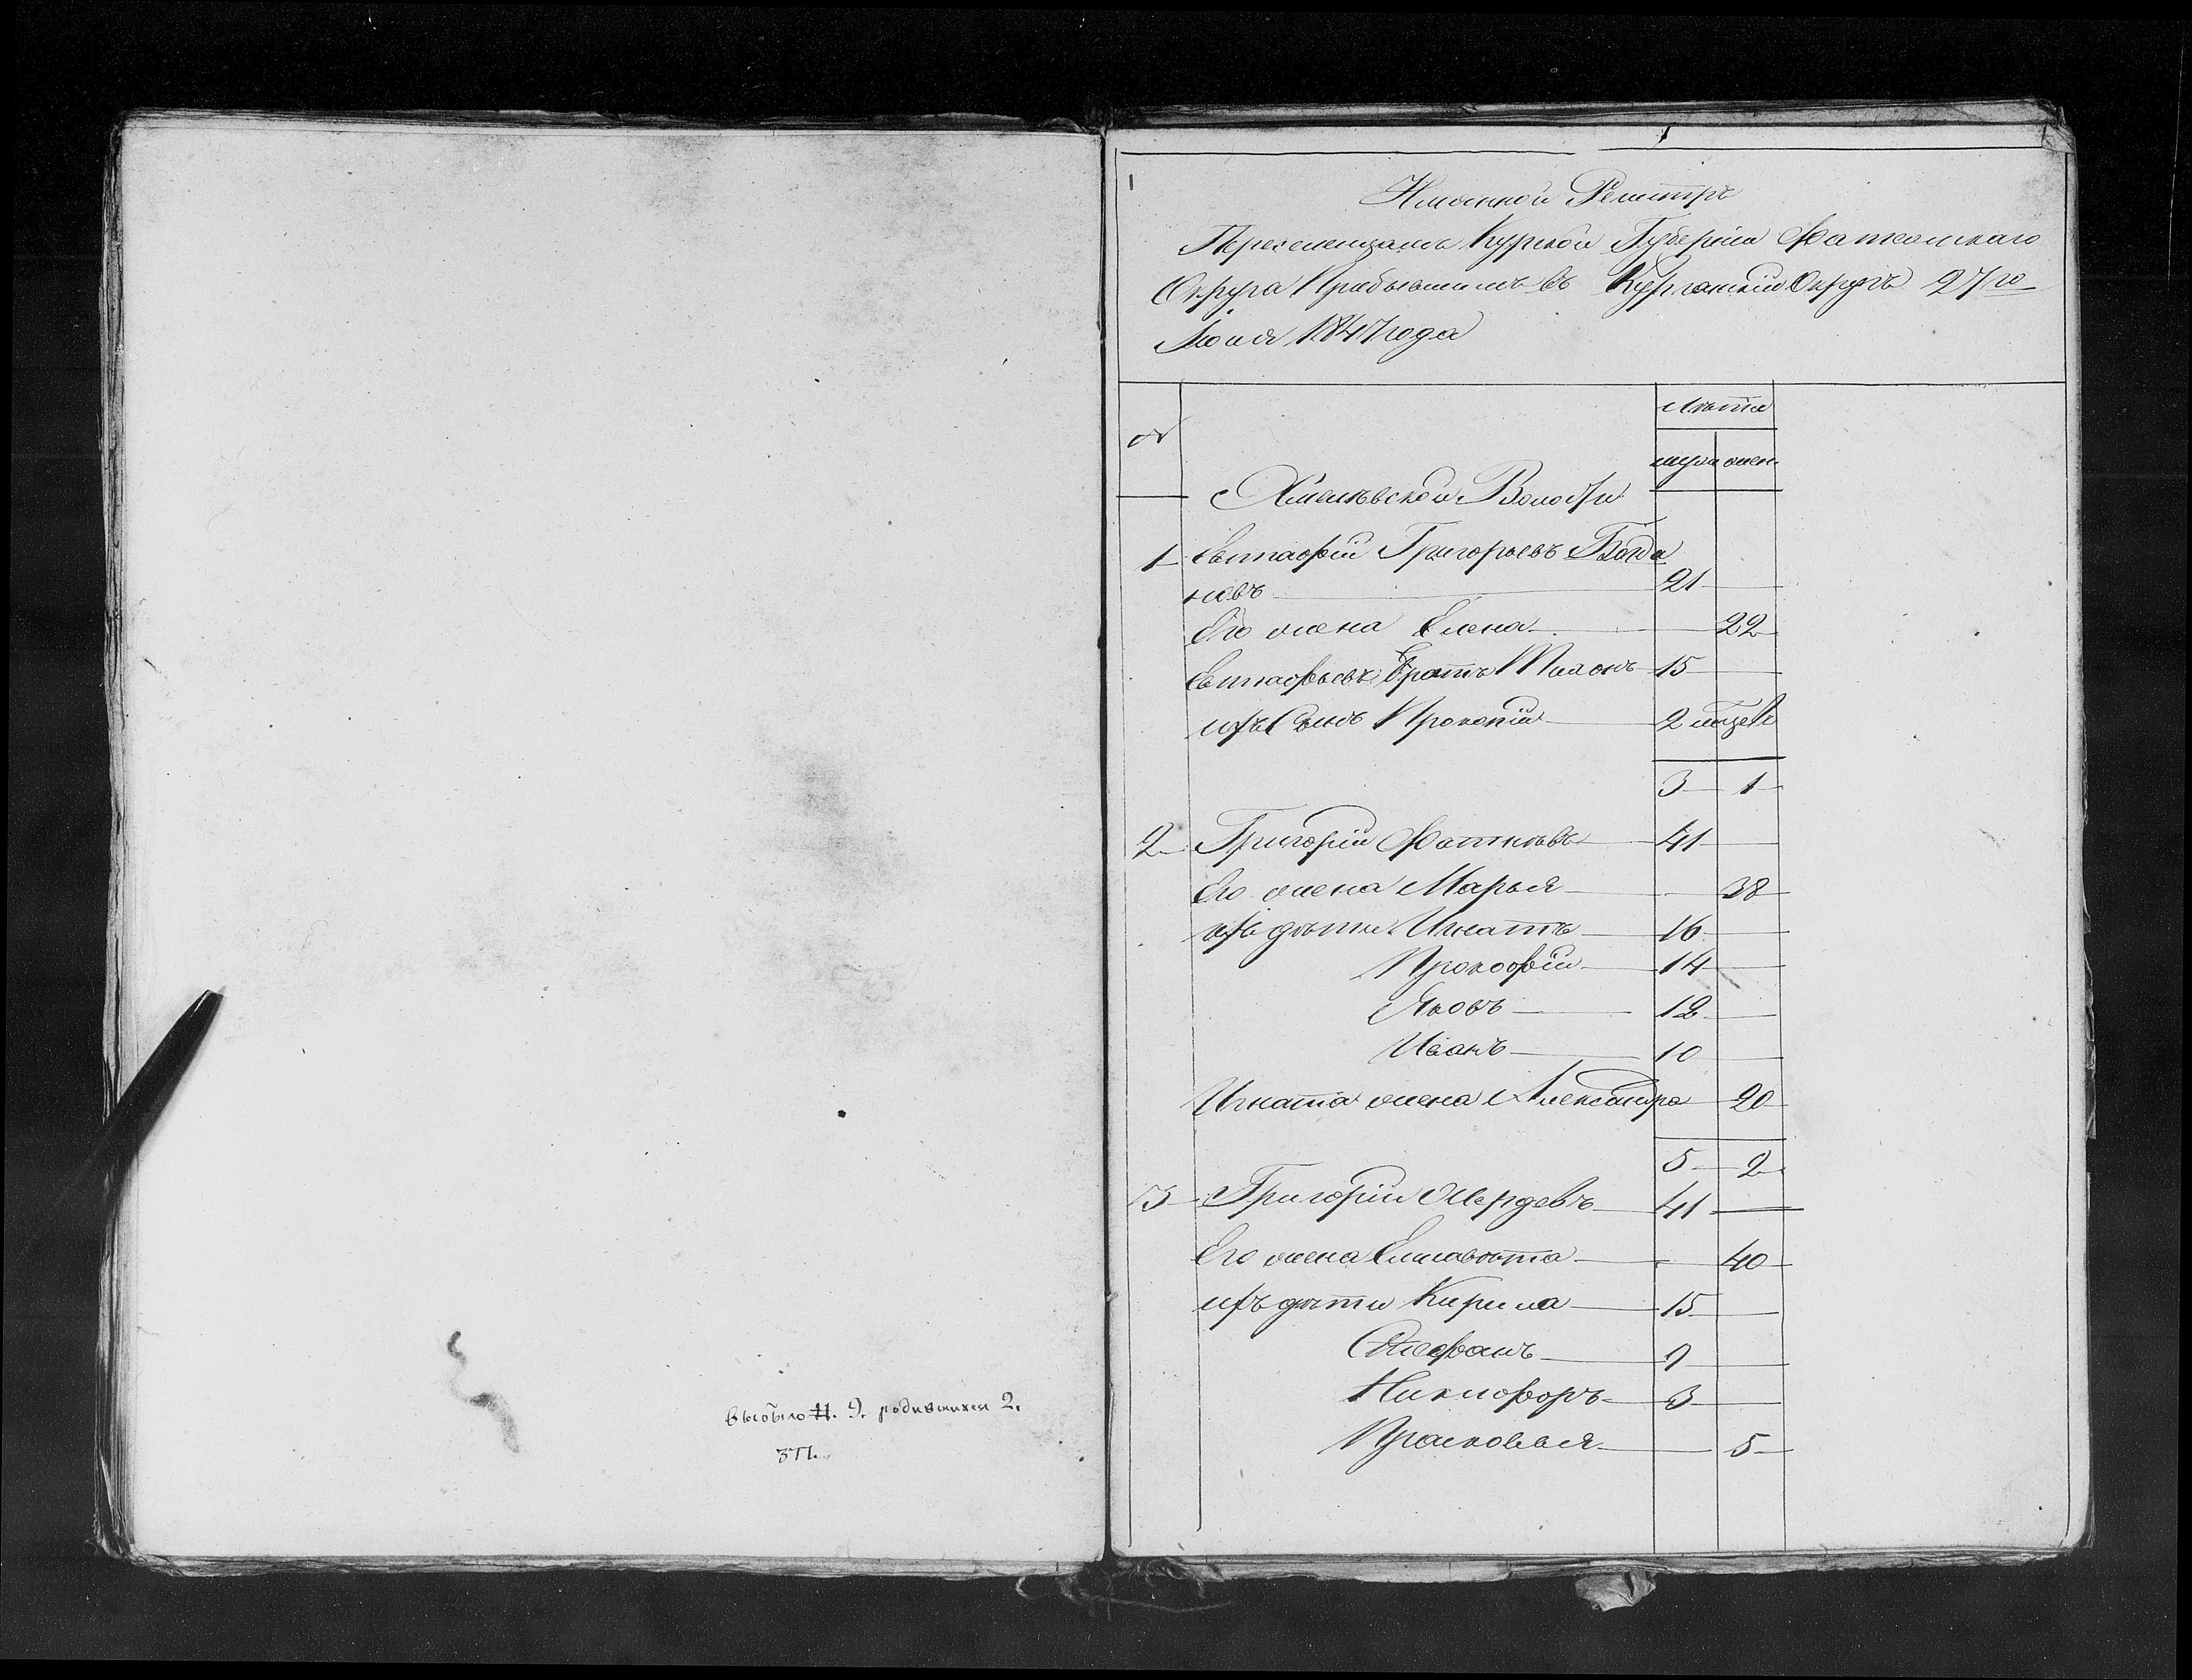 выбыло 11. 9. родившихся 2.
377.
1
Именной Реэстръ
Переселенцамъ Курской Губерніи Фатежскаго
Округа Прибывшимъ въ Курганскій Округъ 27го
Іюля 1847 года
№
Лѣта
муж жен.
Хмелевской Волости
1 Евстафій Григорьевъ Богда
новъ 21
Его жена Елена 22
Евстафьевъ братъ Тихонъ 15
ихъ Сынъ Прокопій 2 месеца
3 1
2 Григорій Фатнѣвъ 41
Его жена Марья 38
ихъ дѣти Игнатъ 16
Прокофій 14
Яковъ 12
Иванъ 10
Игната жена Александра 20
5 2
3 Григорій 41
Его жена Елисавѣта 40
ихъ дѣти Кирила 15
Стефанъ 9
Никифоръ 3
Прасковья 5